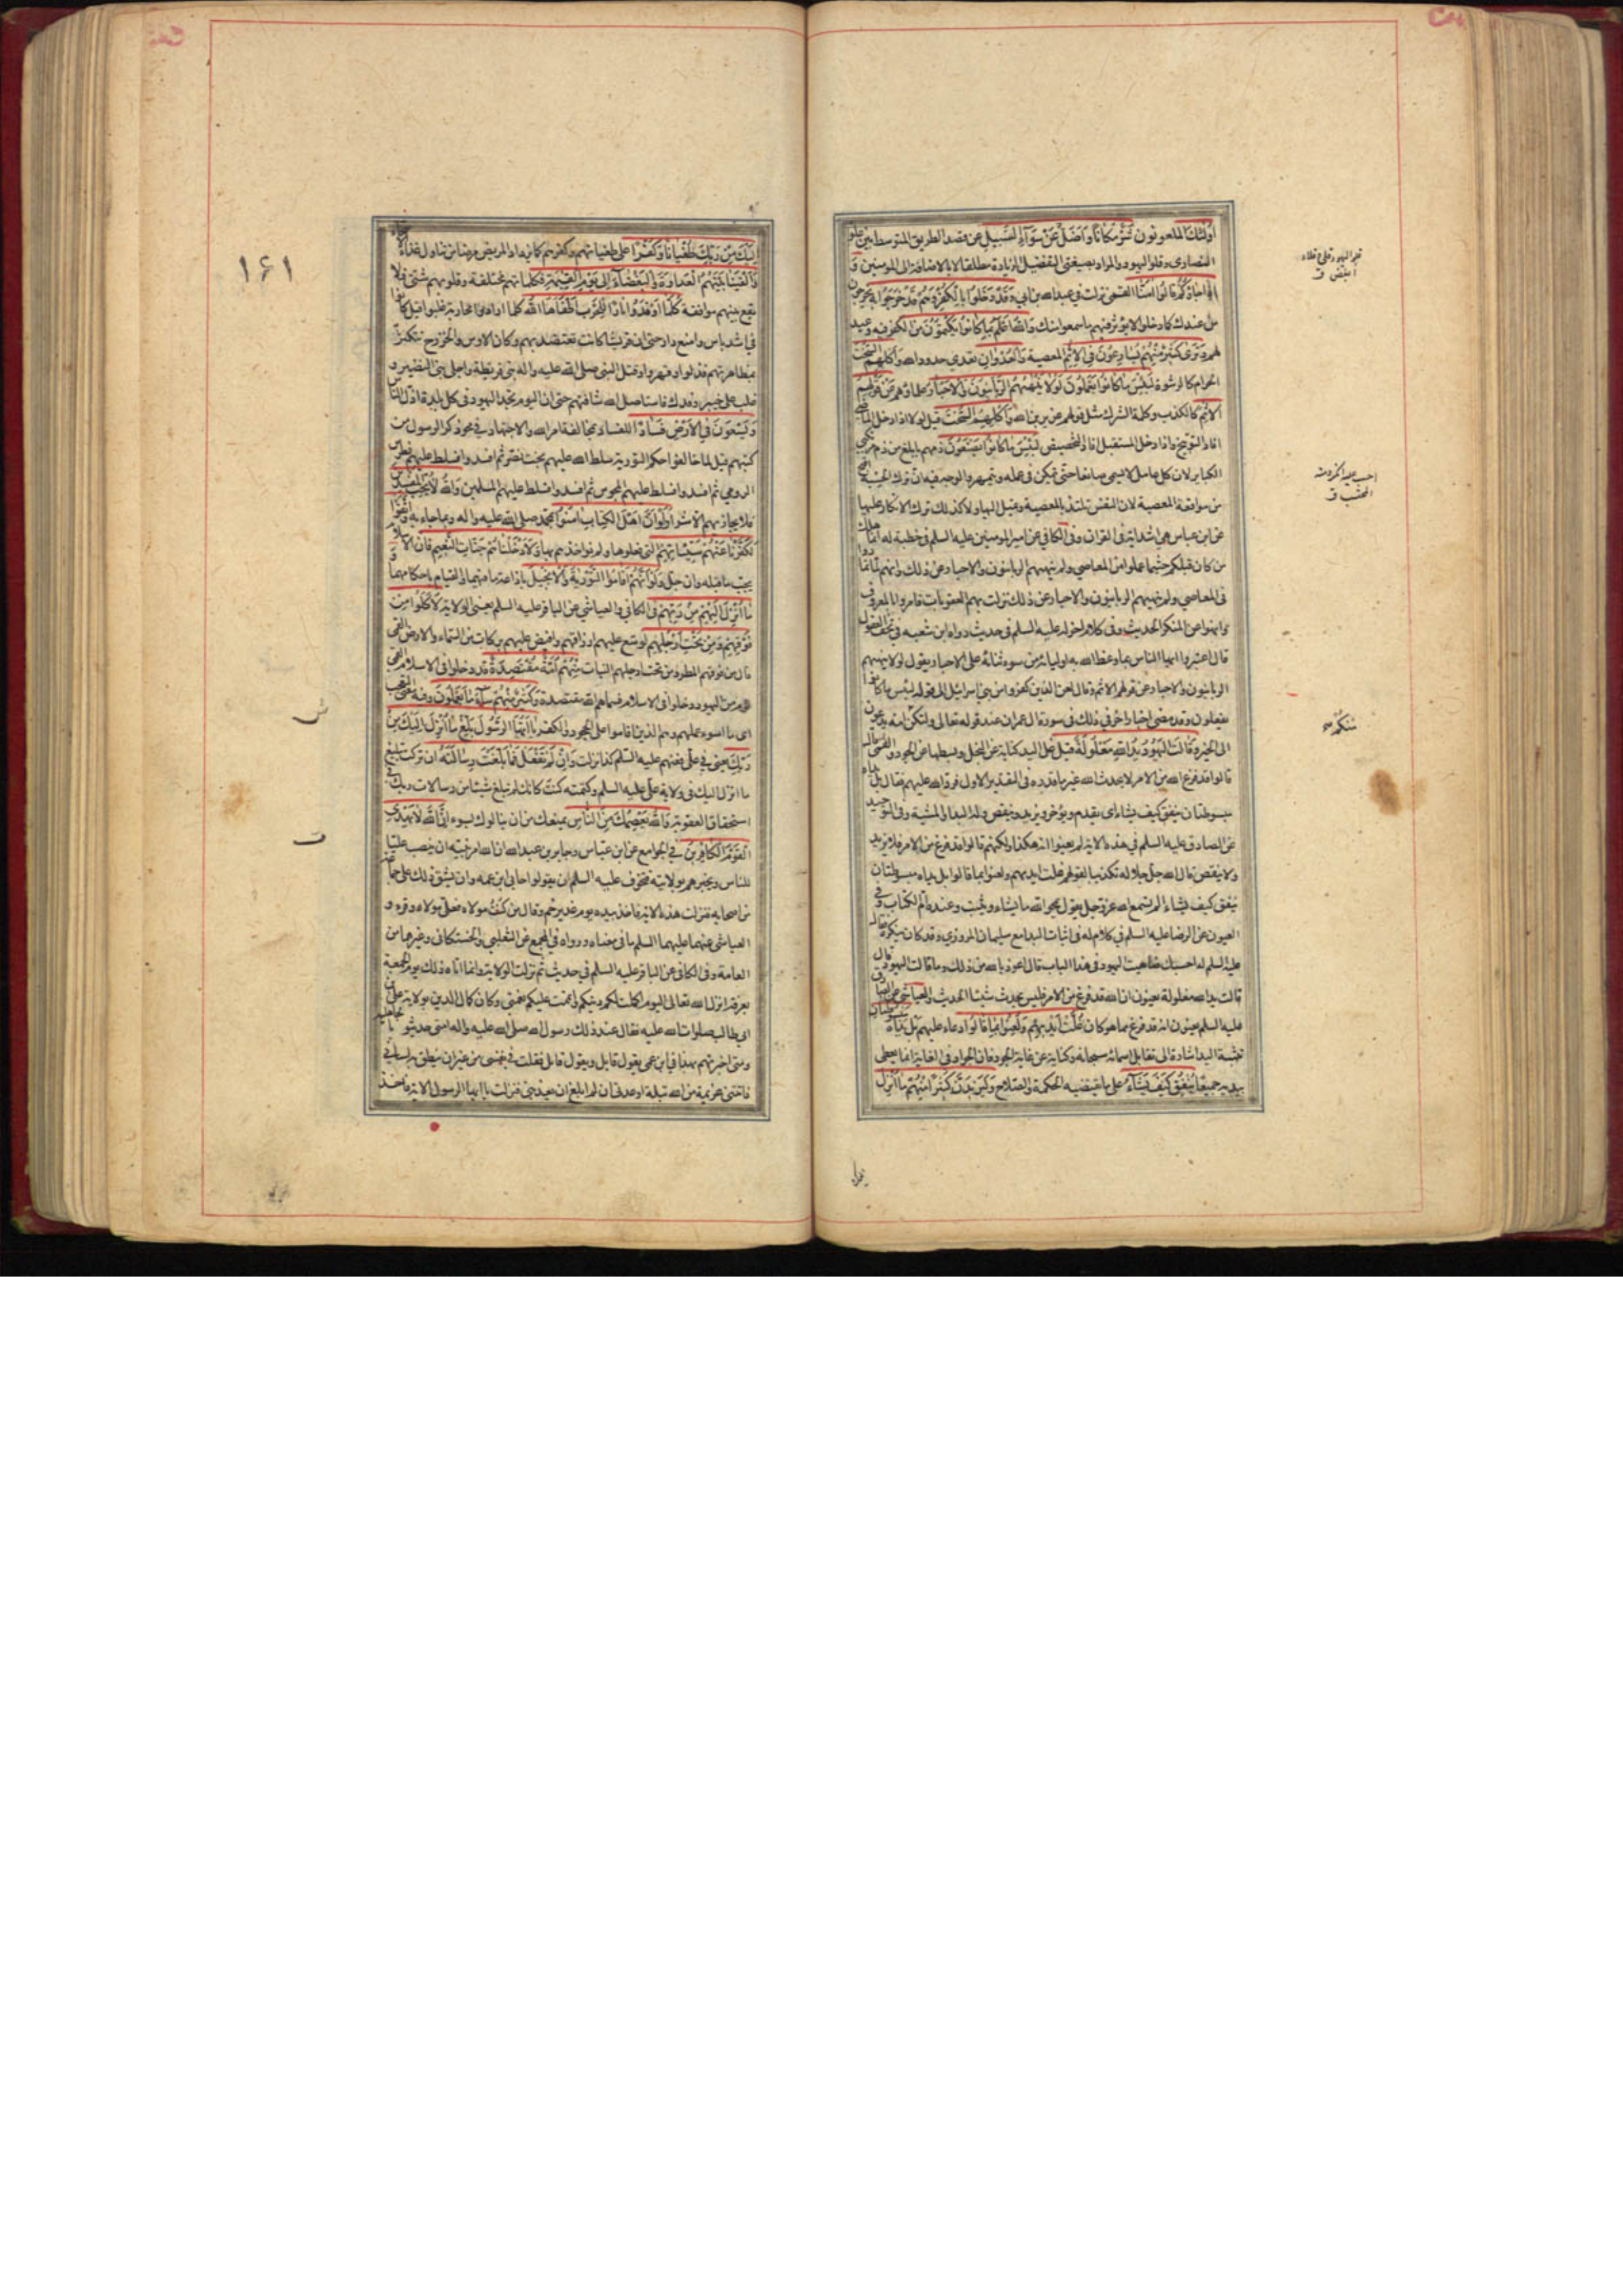 اولئك الملعونون شر مكانا واضل عن سواء السبيل عن قصد الطريق المتوسط بين غلو
النصارى وغلو اليهود والمراد بصيغتى التفضيل الزيادة مطلقا لا بالاضافة الى المومنين و
اذا جاؤكم قالوا امنا القمى نزلت فى عبدالله بن ابى وقد دخلوا بالكفر وهم قد خرجوا به يخرجون
من عندك كما دخلوا لا يؤثر فيهم ما سمعوا منك والله اعلم بما كانوا يكتمون من الكفر فيه وعيد
لهم وترى كثيرا منهم يسارعون فى الاثم المعصية والعدوان تعدى حدود الله واكلهم السحت
الحرام كالرشوة لبئس ما كانوا يعملون لولا ينهيهم الربانيون والاحبار علماؤهم عن قولهم
الاثم كالكذب وكلمة الشرك مثل قولهم عزير بن الله واكلهم السحت قيل لولا اذا دخل الماضى
افاد التوبيخ واذا دخل المستقبل افاد التحضيض لبئس ما كانوا يصنعون ذمهم بابلغ من ذم مرتكبى
الكباير لان كل عامل لا يسمى صانعا حتى يتمكن فى عمله ويتمهر والوجه فيه ان ترك الحسبة اقبح
من مواقعة المعصية لان النفس تلتذ بالمعصية وتميل اليها ولا كذلك ترك الانكار عليها
عن ابن عباس هى اشد اية فى القران وفى الكافى عن امير المومنين عليه السلم فى خطبة له انما هلك
من كان قبلكم حيثما عملوا من المعاصى ولم ينههم الربانيون والاحبار عن ذلك وانهم لما تمادوا
فى المعاصى ولم ينههم الربانيون والاحبار عن ذلك نزلت بهم العقوبات فامروا بالمعروف
وانهوا عن المنكر الحديث وفى كلام اخر له عليه السلم فى حديث رواه ابن شعبه فى تحف العقول
قال اعتبروا ايها الناس بما وعظ الله به اوليائه من سوء ثنائه على الاحبار يقول لولا ينهيهم
الربانيون والاحبار عن قولهم الاثم وقال لعن الذين كفروا من بنى اسرائيل الى قوله لبئس ما كانوا
يفعلون وقد مضى اخبار اخر فى ذلك فى سورة ال عمران عند قوله تعالى ولتكن منكم امة يدعون
الى الخير وقالت اليهود يد الله مغلولة قيل غل اليد كناية عن البخل وبسطها عن الجود والقمى قال
قالوا قد فرغ الله من الامر لا يحدث الله غير ما قدره فى التقدير الاول فرد الله عليهم فقال بل يداه
مبسوطتان ينفق كيف يشاء اى يقدم ويؤخر ويزيد وينقص وله البداء والمشية وفى التوحيد
عن الصادق عليه السلم فى هذه الاية لم يعنوا انه هكذا ولكنهم قالوا قد فرغ من الامر فلا يزيد
ولا ينقص قال الله جل جلاله تكذيبا لقولهم غلت ايديهم ولعنوا بما قالوا بل يداه مبسوطتان
ينفق كيف يشاء الم تسمع الله عز وجل يقول يمحوا الله ما يشاء ويثبت وعنده ام الكتاب وفى
العيون عن الرضا عليه السلم فى كلام له فى اثبات البدا مع سليمان المروزى وقد كان ينكره فقال
عليه السلم له احسبك ضاهيت اليهود فى هذا الباب قال اعوذ بالله من ذلك وما قالت اليهود قال
قالت يد الله مغلولة يعنون ان الله قد فرغ من الامر فليس يحدث شيئا الحديث والعياشى عن الصادق
عليه السلم يعنون انه قد فرغ مما هو كائن غلت ايديهم ولعنوا بما قالوا دعاء عليهم بل يداه مبسوطتان
تثنية اليد اشارة الى تقابل اسمائه سبحانه وكناية عن غاية الجود فان الجواد فى الغاية انما يعطى
بيديه جميعا ينفق كيف يشاء على ما يقتضيه الحكمة والصلاح وليزيدن كثيرا منهم ما انزل
اليك
سنكم صح
اليك من ربك طغيانا وكفرا على طغيانهم وكفرهم كما يزداد المريض مرضا من تناول غذاء الاصحاء
والقينا بينهم العداوة والبغضاء الى يوم القيمة فكلماتهم مختلفة وقلوبهم شتى فلا
تقع بينهم موافقة كلما اوقدوا نارا للحرب اطفاها الله كلما ارادوا محاربة غلبوا قيل كانوا
فى اشد باس وامنع دار حتى ان قريشا كانت تعتضد بهم وكان الاوس والخزرج تتكثر
بمظاهرتهم فذلوا وقهروا وقتل النبى صلى الله عليه واله بنى قريظة واجلى بنى النضير و
غلب على خيبر وفدك فاستاصل الله شافتهم حتى ان اليوم تجد اليهود فى كل بلدة اذل الناس
ويسعون فى الارض فسادا للفساد بمخالفة امر الله والاجتهاد فى محو ذكر الرسول من
كتبهم قيل لما خالفوا حكم التورية سلط الله عليهم بخت نصر ثم افسدوا فسلط عليهم فطرس
الرومى ثم افسدوا فسلط عليهم المجوس ثم افسدوا فسلط عليهم المسلمين والله لا يحب المفسدين
فلا يجازيهم الا شرا ولو ان اهل الكتاب امنوا بمحمد صلى الله عليه واله وبما جاء به واتقوا
لكفرنا عنهم سيئاتهم التى فعلوها ولم نواخذهم بها ولادخلناهم جنات النعيم فان الاسلام
يجب ما قبله وان جل ولو انهم اقاموا التورية والانجيل باذاعة ما فيهما والقيام باحكامهما و
ما انزل اليهم من ربهم فى الكافى والعياشى عن الباقر عليه السلم يعنى الولاية لاكلوا من
فوقهم ومن تحت ارجلهم لوسع عليهم ارزاقهم وافيض عليهم بركات من السماء والارض القمى
قال من فوقهم المطر ومن تحت ارجلهم النبات منهم امة مقتصدة قد دخلوا فى الاسلام القمى
قوم من اليهود دخلوا فى الاسلام فسماهم الله مقتصدة وكثير منهم ساء ما يعملون وفيه معنى التعجب
اى ما اسوء عملهم وهم الذين اقاموا على الجحود والكفر يا ايها الرسول بلغ ما انزل اليك من
ربك يعنى فى على فعنهم عليه السلم كذا نزلت وان لم تفعل فما بلغت رسالته ان تركت تبليغ
ما انزل اليك فى ولاية على عليه السلم وكتمته كنت كانك لم تبلغ شيئا من رسالات ربك فى
استحقاق العقوبة والله يعصمك من الناس يمنعك من ان ينالوك بسوء ان الله لا يهدى
القوم الكافرين فى الجوامع عن ابن عباس وجابر بن عبدالله ان الله امر نبيه ان ينصب عليا
للناس ويخبرهم بولايته فتخوف عليه السلم ان يقولوا حابى ابن عمه وان يشق ذلك على جماعة
من اصحابه فنزلت هذه الاية فاخذ بيده يوم غدير خم وقال من كنت مولاه فعلى مولاه وقرء و
العياشى عنهما عليهما السلم ما فى معناه ورواه فى المجمع عن الثعلبى والحسكانى وغيرهما من
العامة وفى الكافى عن الباقر عليه السلم فى حديث ثم نزلت الولاية وانما اتاه ذلك يوم الجمعة
بعرفة انزل الله تعالى اليوم اكملت لكم دينكم واتممت عليكم نعمتى وكان كمال الدين بولاية على بن
ابى طالب صلوات الله عليه فقال عند ذلك رسول الله صلى الله عليه واله امتى حديثو عهد بالجاهلية
ومتى اخبرتهم بهذا فى ابن عمى يقول قايل ويقول قايل فقلت فى نفسى من غير ان ينطق به لسانى
فاتتنى عزيمة من الله بتلة اوعدنى ان لم ابلغ ان يعذبنى فنزلت يا ايها الرسول الاية فاخذ
١۶١